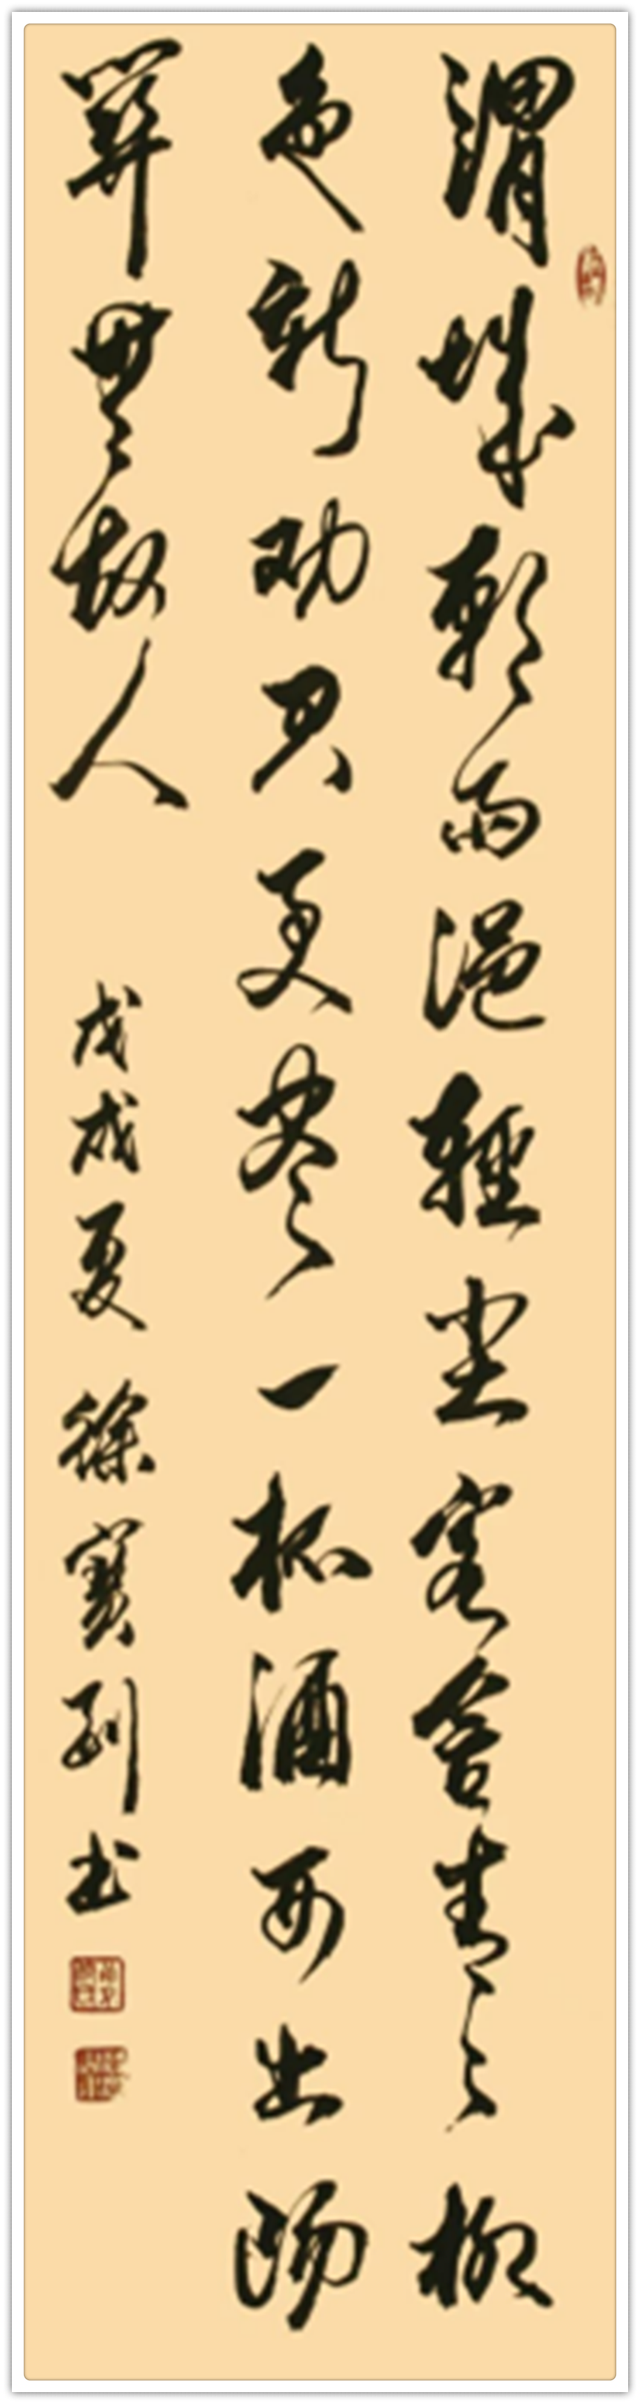 渭城朝雨浥輕尘客舍青々柳
色新劝君更尽一杯酒西出陽
關無故人
戊戌夏 徐寶列书